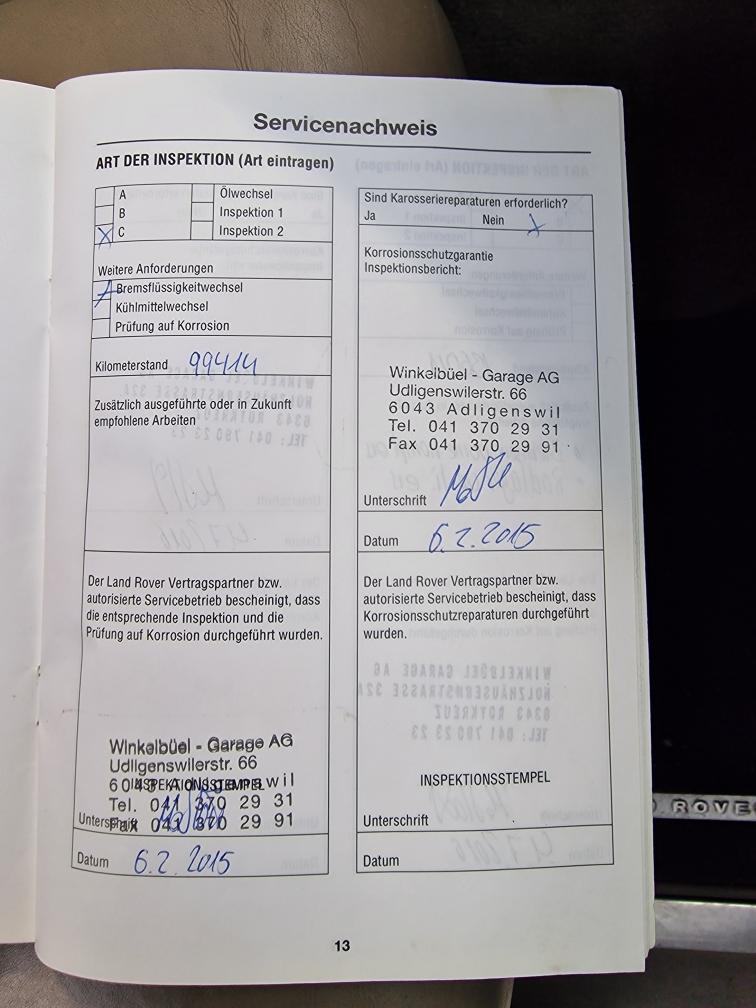 Servicenachweis
ART DER INSPEKTION (Art eintragen)
A
Ölwechsel
B
Inspektion 1
X C
Inspektion 2
Weitere Anforderungen
Bremsflüssigkeitwechsel
Kühlmittelwechsel
Prüfung auf Korrosion
Kilometerstand 99414
Zusätzlich ausgeführte oder in Zukunft
empfohlene Arbeiten
Der Land Rover Vertragspartner bzw.
autorisierte Servicebetrieb bescheinigt, dass
die entsprechende Inspektion und die
Prüfung auf Korrosion durchgeführt wurden.
Winkelbüel - Garage AG
Udligenswilerstr. 66
6043 Adligenswil
INSPEKTIONSSTEMPEL
Tel. 041 370 29 31
Unterschrift
Fax 041 370 29 91
Datum 6.2.2015
Sind Karosseriereparaturen erforderlich?
Ja Nein X
Korrosionsschutzgarantie
Inspektionsbericht:
Winkelbüel - Garage AG
Udligenswilerstr. 66
6043 Adligenswil
Tel. 041 370 29 31
Fax 041 370 29 91
Unterschrift
Datum 6.2.2015
Der Land Rover Vertragspartner bzw.
autorisierte Servicebetrieb bescheinigt, dass
Korrosionsschutzreparaturen durchgeführt
wurden.
INSPEKTIONSSTEMPEL
Unterschrift
Datum
13
ROVER